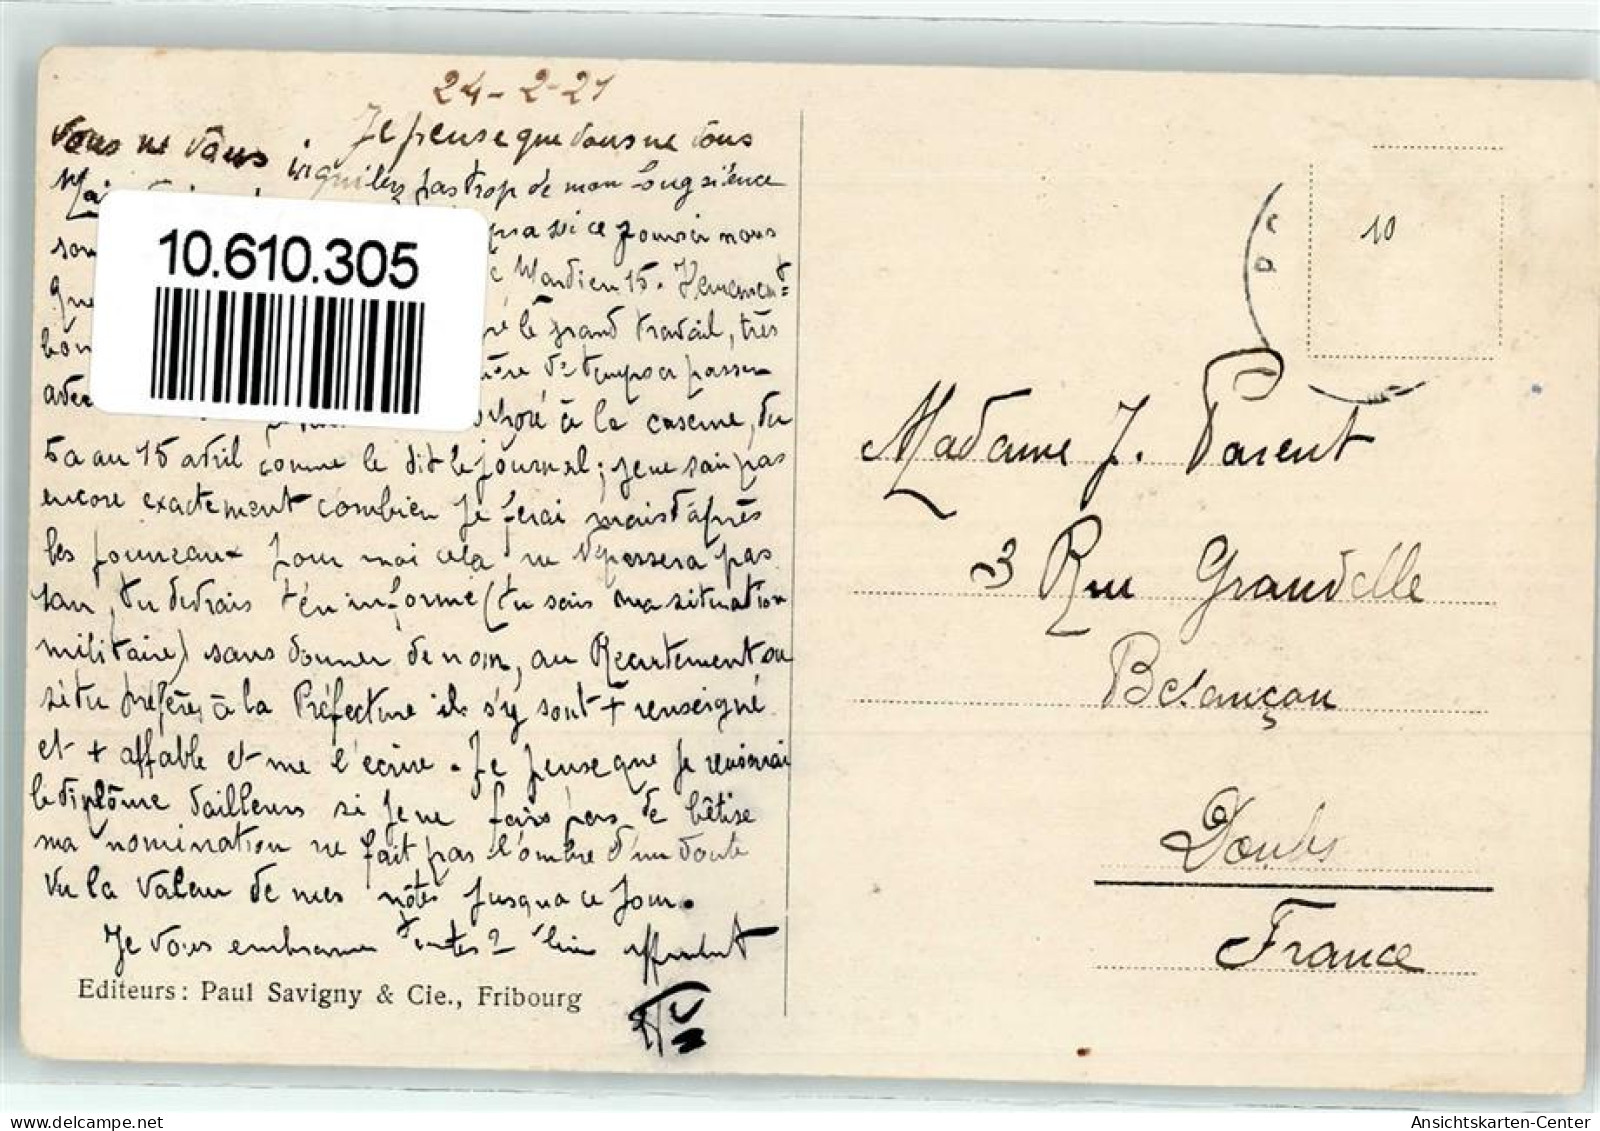 24-2-21
Je pense que vous ne vous
vous ne vous inquilez pas trop de mon long silence
Mai
som jusqu'a ici ce jour
que Mardieu 15.
bon le grand travail, très
avec de temps a passer
à la caserne, du
5 a au 15 avril comme le dit le journal; je ne sais pas
encore exactement combien je ferai mais d'après
les journeaux pour moi cela ne dépassera pas
tu devrais t'en informé (tu sais ma situation
militaire) sans donner de nom, au Recrutement ou
si tu préfères à la Préfecture ils s'y sont + renseigné
et + affable et me l'écrire. Je pense que je reussirai
le diplôme d'ailleurs si je ne fais pas de bêtise
ma nomination ne fait pas l'ombre d'un doute
vu la valeur de mes notes jusqu'a ce jour.
Je vous embrasse toutes 2 bien affectueu
10.610.305
Editeurs: Paul Savigny & Cie., Fribourg
10
Madame J. Parent
3 Rue Grandvelle
Besançon
Doubs
France
Ansichtskarten-Center